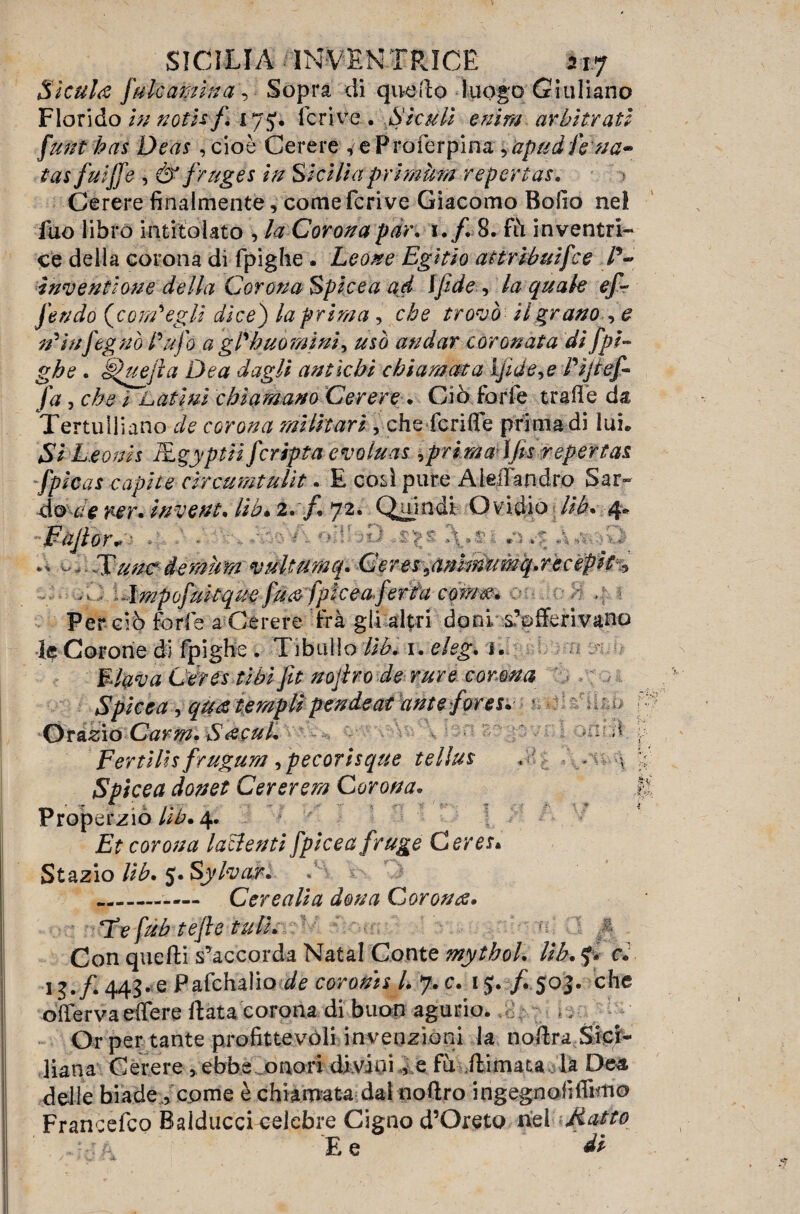 SICILIA INVENTRICE 217
Siculæ fulcamina, Sopra di questo luogo Giuliano
Florido in notis f. 175. scrive. Siculi enim arbitrati
sunt has Deas, cioè Cerere, e Proserpina, apud se na-
tas fuisse, & fruges in Sicilia primùm repertas.
Cerere finalmente, come scrive Giacomo Bosio nel
suo libro intitolato, la Corona par. 1. f. 8. fù inventri-
ce della corona di spighe. Leone Egitio attribuisce l'-
inventione della Corona Spicea ad Iside, la quale es-
sendo (com'egli dice) la prima, che trovò il grano, e
n'insegnò l'uso a gl'huomini, usò andar coronata di spi-
ghe. Questa Dea dagli antichi chiamata Iside, e l'istes-
sa, che i Latini chiamano Cerere. Ciò forse trasse da
Tertulliano de corona militari, che scrisse prima di lui.
Si Leonis Ægyptii scripta evoluas, prima Isis repertas
spicas capite circumtulit. E così pure Alessandro Sar-
do de rer. invent. lib. 2. f. 72. Quindi Ovidio lib. 4.
Fastor.
Tunc demùm vultumq. Ceres, animumq. recèpit,
Imposuitque suæ spicea serta comæ.
Per ciò forse a Cerere frà gli altri doni s'offerivano
le Corone di spighe. Tibullo lib. 1. eleg. 1.
Flava Ceres tibi sit nostro de rure corona
Spicea, quæ templi pendeat ante fores.
Orazio Carm. Sæcul.
Fertilis frugum, pecorisque tellus
Spicea donet Cererem Corona.
Properzio lib. 4.
Et corona lactenti spicea fruge Ceres.
Stazio lib. 5. Sylvar.
---------- Cerealia dona Coronæ.
Te sub teste tuli.
Con questi s'accorda Natal Conte mythol. lib. 5. c.
13. f. 443. e Paschalio de coronis l. 7. c. 15. f. 503. che
osserva essere stata corona di buon agurio.
Or per tante profittevoli invenzioni la nostra Sici-
liana Cerere, ebbe onori divini, e fù stimata la Dea
delle biade, come è chiamata dal nostro ingegnosissimo
Francesco Balducci celebre Cigno d'Oreto nel Ratto
E e di